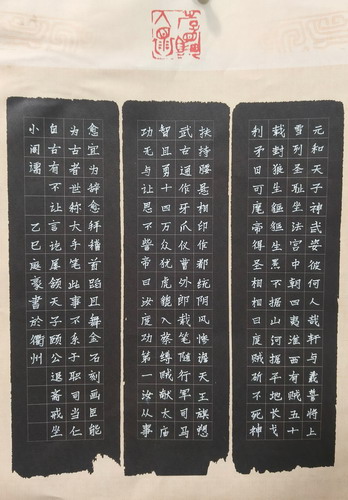 元和天子神武姿彼何人哉轩与羲誓将上
雪列圣耻坐法宫中朝四夷淮西有贼五十
载封狼生貙貙生罴不据山河据平地长戈
利矛日可麾帝得圣相相曰度贼斫不死神
扶持腰悬相印作都统阴风惨澹天王旗愬
武古通作牙爪仪曹外郎载笔随行军司马
智且勇十四万众犹虎貔入蔡缚贼献太庙
功无与让恩不訾帝曰汝度功第一汝从事
愈宜为辞愈拜稽首蹈且舞金石刻画臣能
为古者世称大手笔此事不系于职司当仁
自古有不让言讫屡颔天子颐公退斋戒坐
小阁濡 乙巳庭豪書於衢州